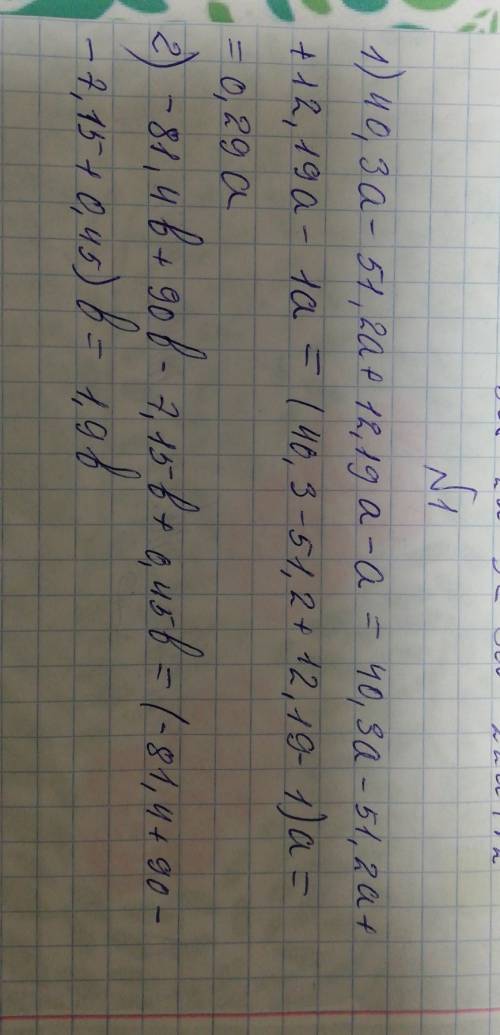 N1
1) 40,3a - 51,2a + 12,19a - a = 40,3a - 51,2a +
+ 12,19a - 1a = (40,3 - 51,2 + 12,19 - 1)a =
= 0,29a
2) -81,4b + 90b - 7,15b + 0,45b = (-81,4 + 90 -
- 7,15 + 0,45)b = 1,9b